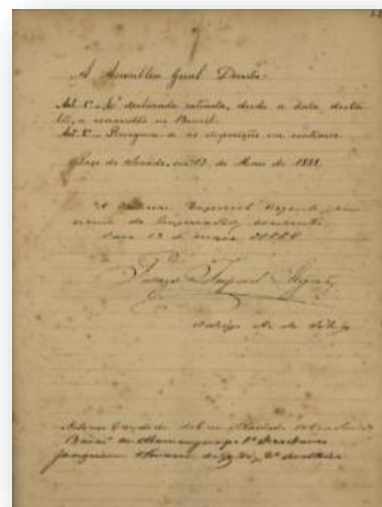 A Assembléa Geral Decreta:
Art. 1º É declarada extincta, desde a data desta
lei, a escravidão no Brasil.
Art. 2º Revogam-se as disposições em contrario.
Paço do Senado, em 13 de Maio de 1888.
A Princeza Imperial Regente, em
nome do Imperador, consente
Paço 13 de maio de 1888
Princeza Imperial Regente
Rodrigo A. da Silva
Barão de Mamanguape 1º Secretario
Joaquim